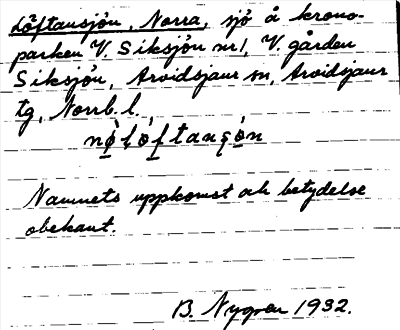 Löftansjön, Norra, sjö å krono-
parken V. Siksjön nr 1, V. gården
Siksjön, Arvidsjaur sn, Arvidsjaur
tg, Norrb. l.
Namnets uppkomst och betydelse
obekant.
B. Nygren 1932.